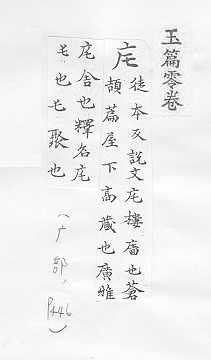 玉篇零卷
庉
徒本反說文庉樓廧也蒼
頡篇屋下高藏也廣雅
庉舍也釋名庉
屯也屯聚也
(广部，P446)